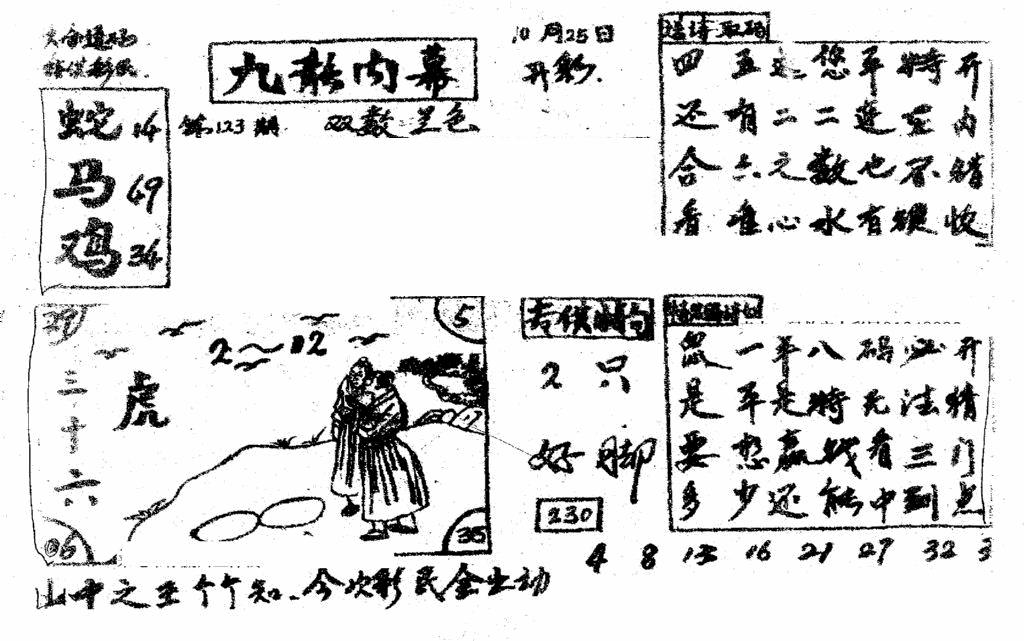 特供彩民.
蛇 14
马 49
鸡 34
九龙内幕
第123期 双数 兰色
10月25日
开彩.
送诗取码
四五 您平特开
还有二二连在内
合六元数也不错
看准心水有钱收
29
三十六
虎
2~02
5
06
35
专供 句
2只
好脚
230
鼠一年八码必开
是平是特无法精
要想赢钱看三门
多少还能中到点
4 8 13 16 21 27 32
山中之王个个知.今次彩民全出动